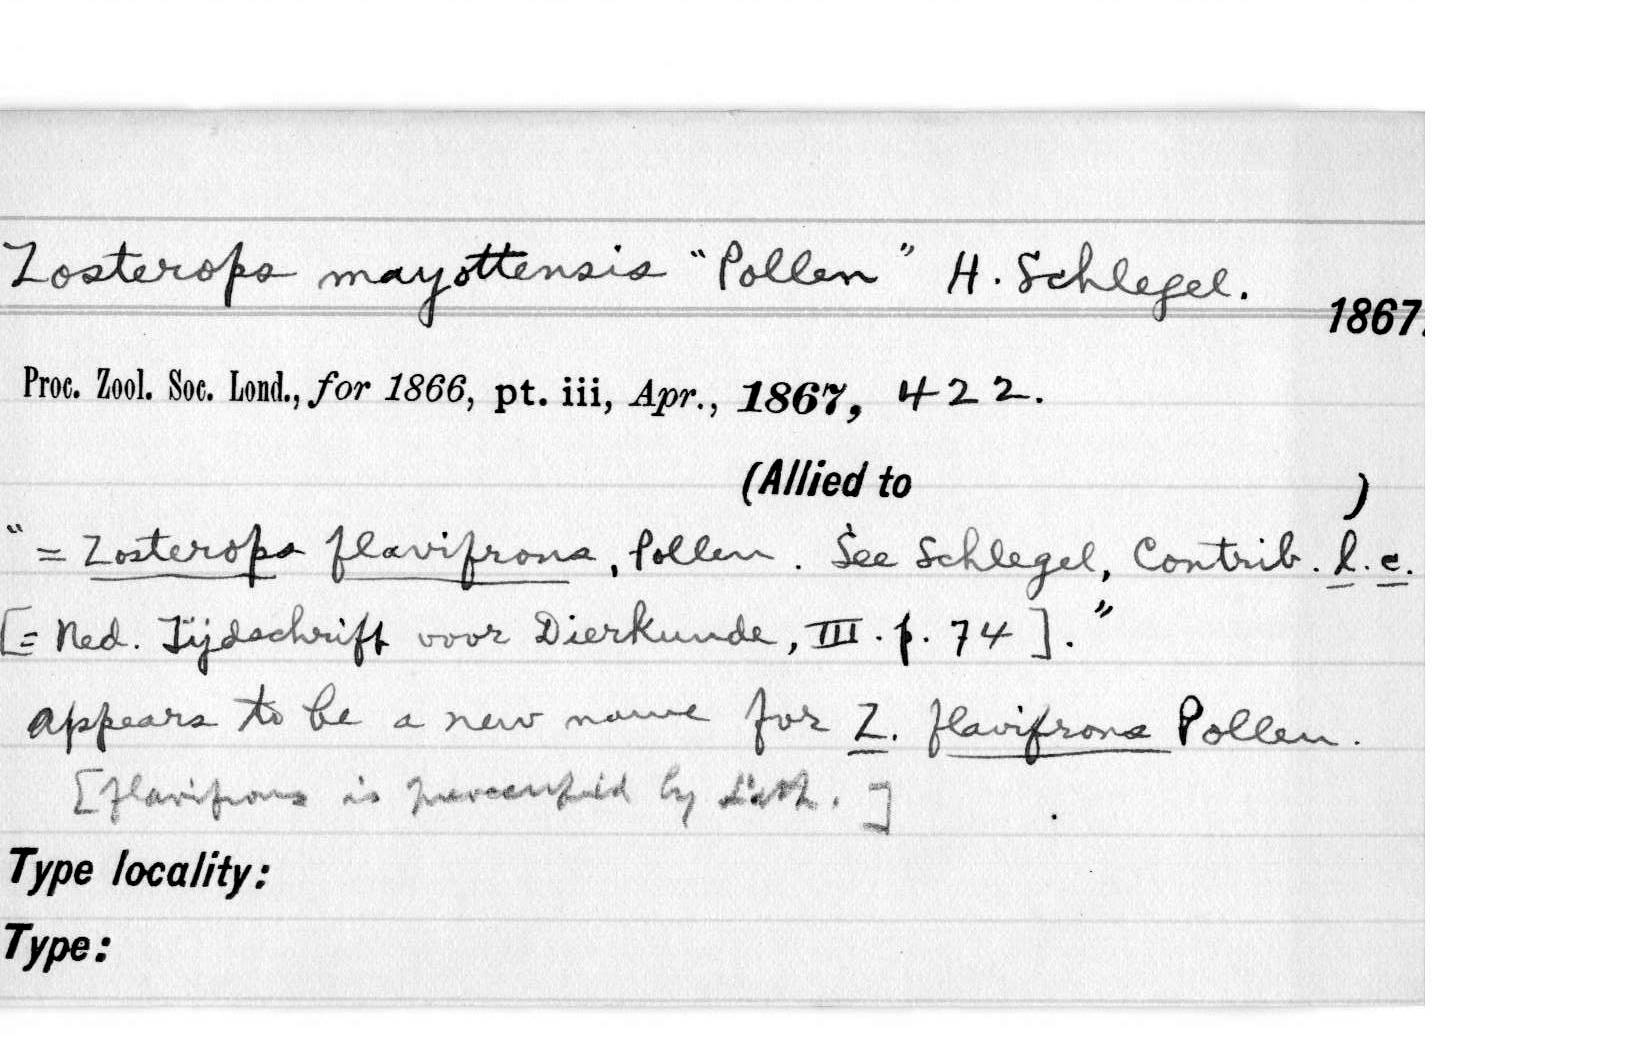 Zosterops mayottensis "Pollen" H. Schlegel.
1867.
Proc. Zool. Soc. Lond., for 1866, pt. iii, Apr., 1867, 422.
(Allied to )
"= Zosterops flavifrons, Pollen. See Schlegel, Contrib. l.c.
[= Ned. Tijdschrift voor Dierkunde, III. p. 74]."
appears to be a new name for Z. flavifrons Pollen.
[flavifrons is by Lath.]
Type locality:
Type: